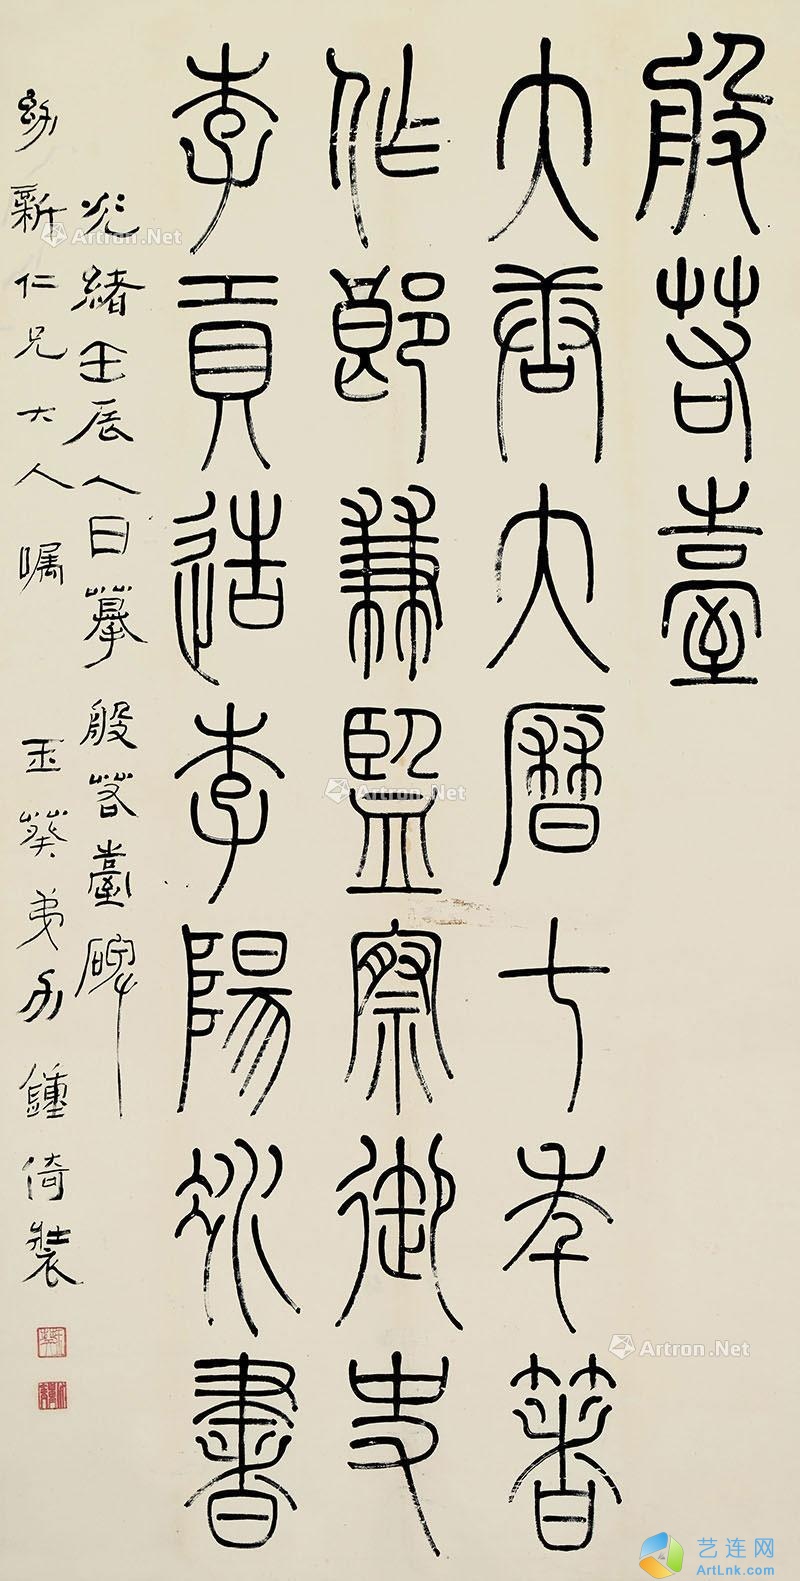 般若臺
大唐大曆七年著
作郎兼監察御史
李貢造李陽冰書
光緒壬辰人日摹般若臺碑
新仁兄大人嘱 王葵弟 鍾倚裝
Artron.Net
Artron.Net
Artron.Net
艺连网
ArtLnk.com